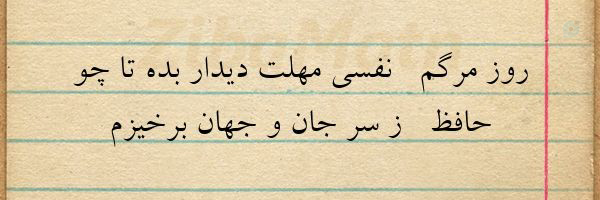 روز مرگم نفسی مهلت دیدار بده تا چو
حافظ ز سر جان و جهان برخیزم